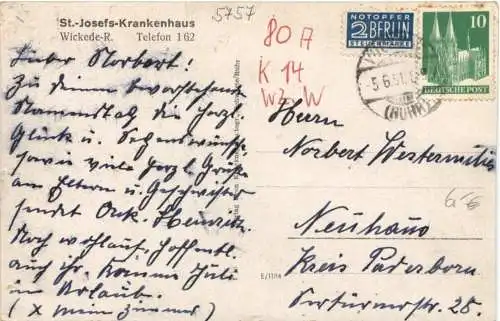 St.-Josefs-Krankenhaus
Wickede-R. Telefon 162
5757
80 A
K 14
W2 W
NOTOPFER
2 BERLIN
STEUERMARKE
10
DEUTSCHE POST
-5.6.51.
(RUHR)
Lieber Norbert!
Zu deinem bevorstehenden
Namenstag die herzl.
Glück u. Segenswünsche
sowie viele herzl. Grüße
an Eltern u. Geschwister
sendet Onk. Heinrich.
Noch wohlauf, hoffentl.
auch ihr. Komme Juli
in Urlaub.
(x mein Zimmer)
Herrn
Norbert
Neuhaus
Kreis Paderborn
28.
E/1104